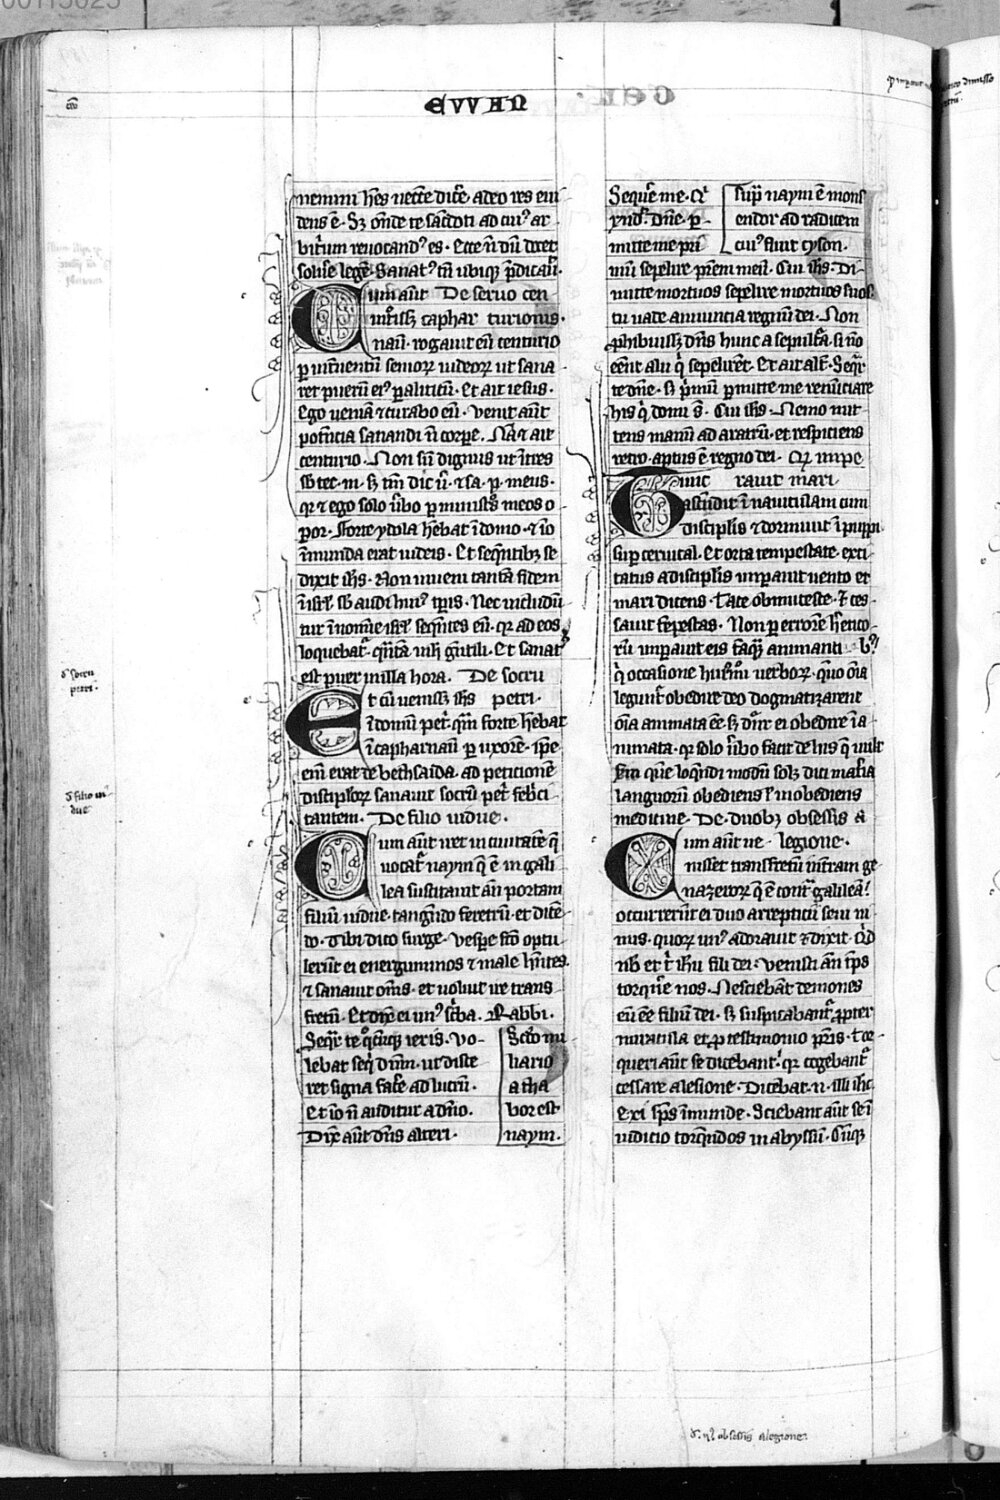 EWAN
nemini hēs necte diċe adeo res eui
dens ē · Sꝫ ōnde te sacdoti ad cuiꝰ ar
bitrium reuocandꝰ es · Ecce n̄ dū docet
soluse legē · Sanatꝰ tn̄ ubiqꝫ p̄dicauit ·
Cum aut̄ De seruo cen
intrassꝫ caphar turionis ·
naū · rogauit eū centurio
ꝑ interuentū senioꝝ iudeoꝝ ut sana
ret pueꝝ eiꝰ paliticū · Et ait iesus ·
Ego ueniā ⁊ curabo eū · Venit aūt
potentia sanandi n̄ corpe · Nā ⁊ ait
centurio · Non sū dignus ut ītres
sb tec · m · sꝫ tm̄ dic ū · ⁊ sa · p · meus ·
qꝛ ⁊ ego solo ūbo ꝑ ministros meos o
por · Forte ydola hēbat ī domo · ⁊ iō
īmunda erat iudeis · Et seqn̄tibꝫ se
dixit ihs · Non inueni tantā fidem
ī isrl̄ sb audi huiꝰ tp̄is · Nec includū
tur ī nomine isrl̄ seqn̄tes eū · qꝛ ad eos
loquebat̄ · Et sanatꝰ
est puer in illa hora · De socru
Et cū uenissꝫ ihs petri ·
ī domū pet̄ · qm̄ forte hēbat
ī capharnaū ꝑ uxorē · ipe
eni erat de bethsaida · ad peticionē
discipłoꝝ sanauit socrū pet̄ feb̄ci
tantem · De filio uidue ·
Cum aūt iret in ciuitatē q̄
uocat̄ naym q̄ ē in gali
lea suscitauit an̄ portam
filiū uidue · tangendo feretrū · et dicē
do · Tibi dico surge · Vespe fc̄o optu
lerūt ei energuminos ⁊ male hn̄tes
⁊ sanauit om̄s · et uoluit ire trans
fretū · Et dixit ei unꝰ sc̄ba · Rabbi ·
Seqr̄ te q̊cūqꝫ ieris · Vo
lebat seq̄ dn̄m · ut disce
ret signa faċe ad lucrū ·
Et iō n̄ auditur a dn̄o ·
Dix aūt dn̄s alteri ·
Sc̄do mi
liario
a tha
bor est
naym ·
Sequere me · Et
rn̄d · Dn̄e · ꝑ
mitte me pri
sup naym ē mons
endor ad radicem
cuiꝰ fluit cyson ·
mū sepelire prēm meū · Cui ihs · Di
mitte mortuos sepelire mortuos suos
tu uade annuncia regnū dei · Non
ꝓhibuissꝫ dn̄s hunc a sepultā · si nō
eēnt alii q̄ sepelirēt · Et ait alt̄ · Seqr̄
te dn̄e · sꝫ p̄mū ꝑmitte me renūciare
his q̄ domi s̄ · Cui ihs · Nemo mit
tens manū ad aratrū · et respiciens
retro · aptus ē regno dei · Qꝛ impe
Tunc rauit mari
ascēdit ī nauiculam cum
discipłis ⁊ dormiuit ī puppi
sup ceruical · Et orta tempestate · exci
tatus a discipłis imꝑauit uento et
mari dicens · Tace obmutesce · ⁊ ces
sauit tēpestas · Non ꝑ errorē hetico
rū imꝑauit eis tāqꝫ animanti bꝰ ·
q̄ occasione huiꝰmōi uerboꝝ · quo oīa
legunt̄ obedire deo dogmatizarent
oīa animata eē · sꝫ dicit̄ ei obedire ī a
nimata · qꝛ solo ūbo facit de his q̄ uult
quē loquendi modū solꝫ dici matia
languori obediens ł inobediens
medicine · De duobꝫ obsessis a
Cum aūt ue legione ·
nisset transfretū int̄ram ge
nazenoꝝ q̄ ē cont̄ galileā ·
occurrerūt ei duo arrepticii seui ni
mis · quoꝝ unꝰ adorauit ⁊ dixit · Q̄d
nb̄ et t̄ ihū fili dei · uenisti an̄ tp̄s
torquē nos · Nesciebāt demones
eū eē filiū dei · sꝫ suspicabant̄ ꝓpter
miracula et ꝓ testimonio pr̄is · Tor
queri aūt se dicebant · qꝛ cogebant̄
cessare a lesione · Dicebat · n · illi ihs
Exi sp̄s īmunde · Sciebant aūt se ī
iudicio torquēdos in abyssū · Cūqꝫ
d' socru
petri ·
d' filio ui
due
d' ij obsessis a legione ·